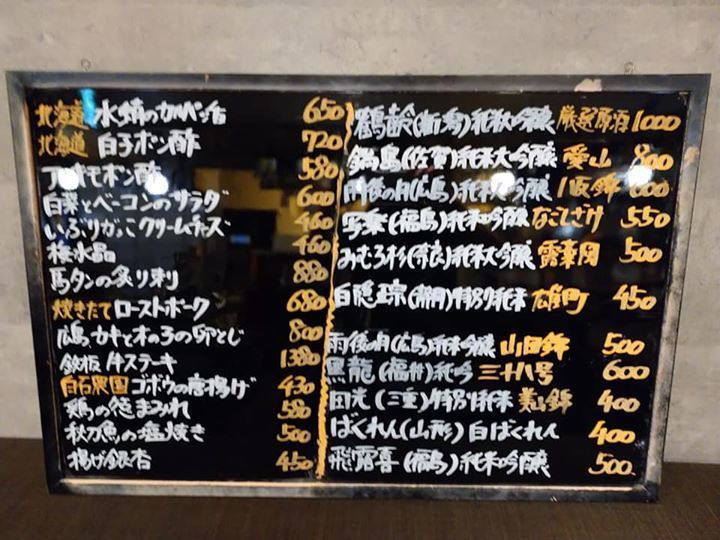 北海道 水蛸のカルパッチョ 650
北海道 白子ポン酢 720
アンキモポン酢 580
白菜とベーコンのサラダ 600
いぶりがっこクリームチーズ 460
梅水晶 460
馬タンの炙り刺 880
焼きたてローストポーク 680
広島カキときのこの卵とじ 800
鉄板 牛ステーキ 1380
白石農園 ゴボウの唐揚げ 430
鶏の 580
秋刀魚の塩焼き 500
揚げ銀杏 450
鶴齢(新潟)純米大吟醸 厳選原酒 1000
鍋島(佐賀)純米大吟醸 愛山 800
雨後の月(広島)純米大吟醸
写楽(福島)純米吟醸 なごしざけ 550
みむろ杉(奈良)純米大吟醸 露葉風 500
白隠正宗(静岡)特別純米 雄町 450
雨後の月(広島)純米吟醸 山田錦 500
黒龍(福井)純吟 三十八号 600
田光(三重)特別純米 美山錦 400
ばくれん(山形)白ばくれん 400
飛露喜(福島)純米吟醸 500